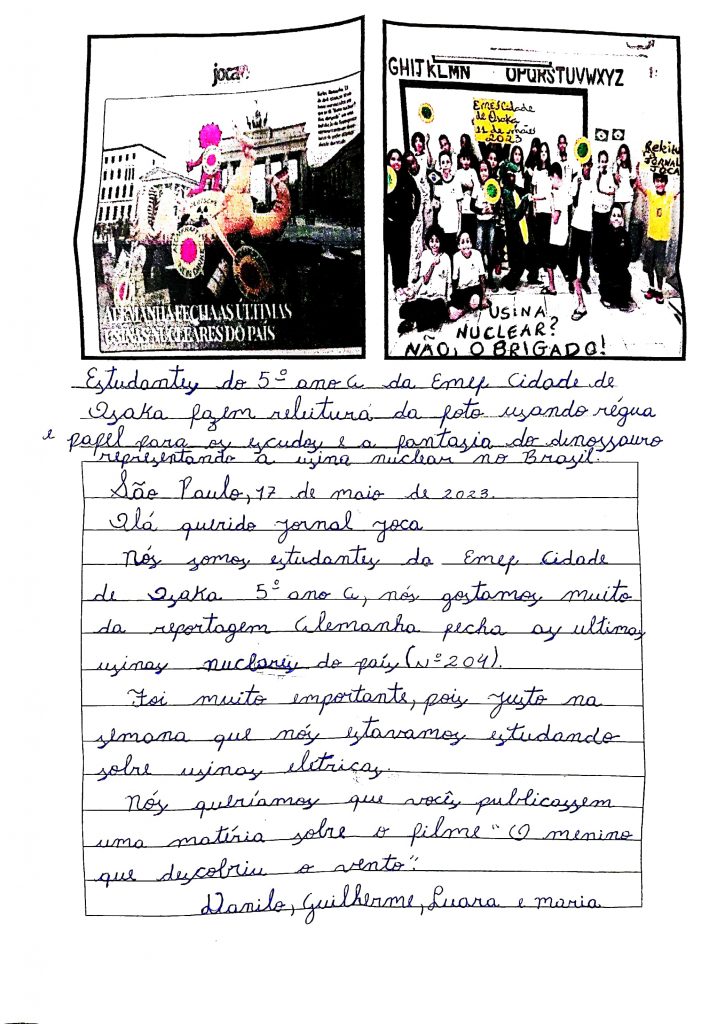 joca
ALEMANHA FECHA AS ÚLTIMAS
USINAS NUCLEARES DO PAÍS
GHIJKLMN OPQRSTUVWXYZ
Emef Cidade
de Osaka
11 de maio
2023
JORNAL
JOCA
USINA
NUCLEAR?
NÃO, OBRIGADO!
Estudantes do 5º ano A da Emef Cidade de
Osaka fazem releitura da foto usando régua
e papel para os escudos e a fantasia do dinossauro
representando a usina nuclear no Brasil.
São Paulo, 17 de maio de 2023.
Olá querido jornal joca
Nós somos estudantes da Emef Cidade
de Osaka 5º ano A, nós gostamos muito
da reportagem Alemanha fecha as ultimas
usinas nuclares do país (Nº 204).
Foi muito emportante, pois justo na
semana que nós estavamos estudando
sobre usinas eletricas.
Nós queríamos que vocês publicassem
uma matéria sobre o filme "O menino
que descobriu o vento".
Danilo, Guilherme, Luara e maria